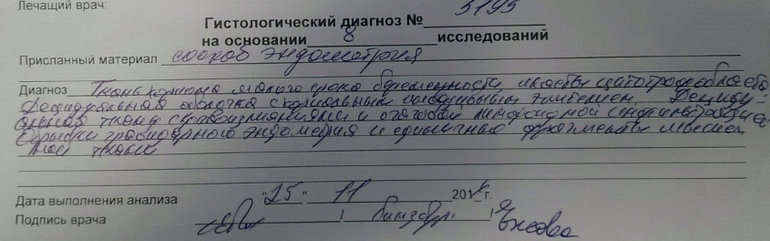 Лечащий врач:
Гистологический диагноз № 5195
на основании 8 исследований
Присланный материал соскоб эндометрия
Диагноз Ткань хориона малого срока беременности, пласты цитотрофобласта
Децидуальная оболочка с
ткань с кровоизлияниями и очаговой лимфоидной инфильтрацией
Обрывки гравидарного эндометрия и единичные фрагменты
ткани
Дата выполнения анализа "25" 11 201 г.
Подпись врача / /